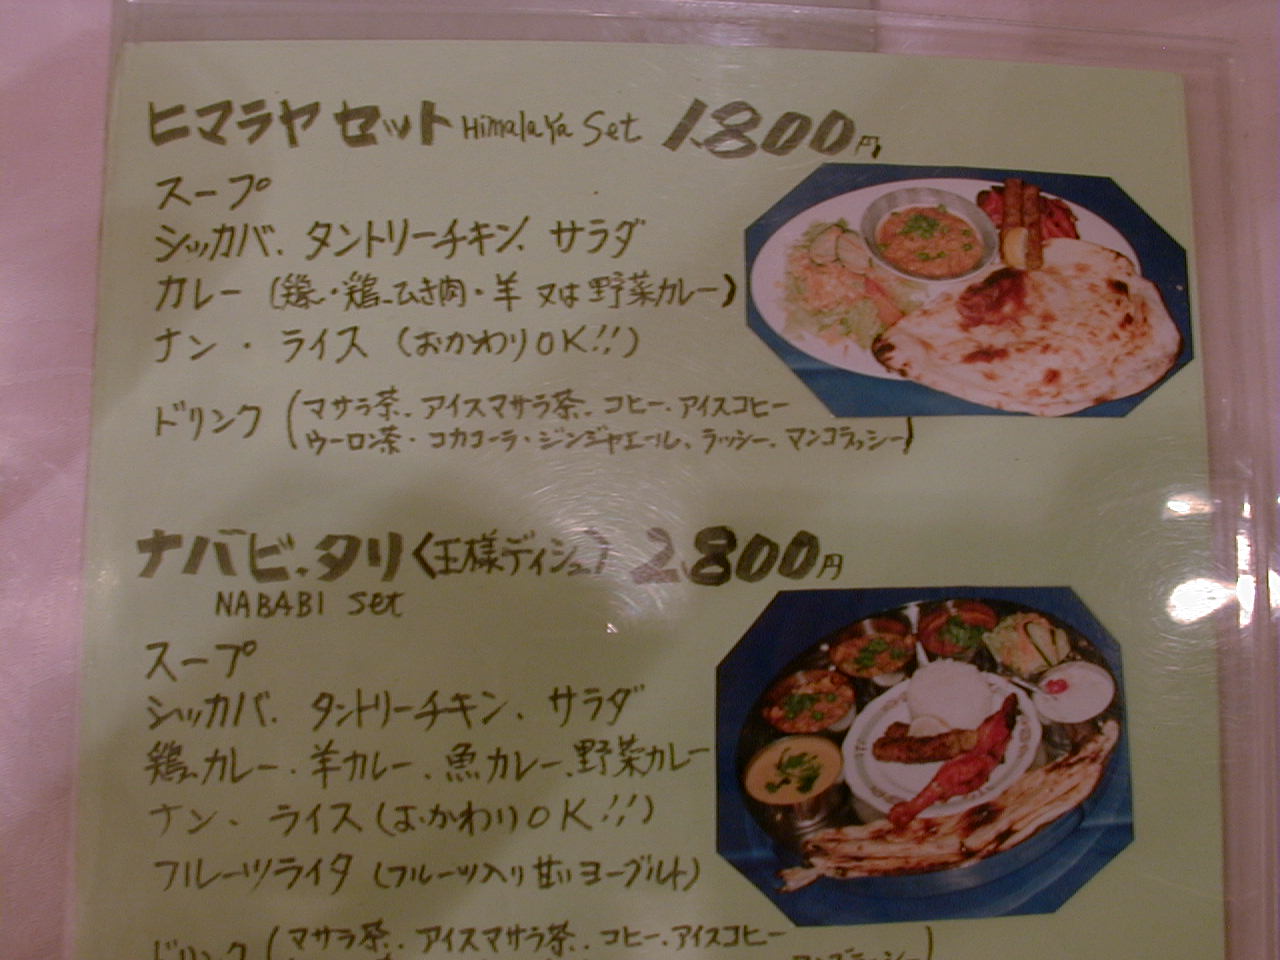 ヒマラヤ セット Himalaya Set 1,800円
スープ
シッカバ、タントリーチキン、サラダ
カレー (鶏・鶏ひき肉・羊 又は野菜カレー)
ナン・ライス (おかわりOK!!)
ドリンク (マサラ茶、アイスマサラ茶、コヒー、アイスコヒー
ウーロン茶・コカコーラ・ジンジャエール、ラッシー、マンゴラッシー)
ナバビ、タリ〈王様ディシュ〉 2,800円
NABABI Set
スープ
シッカバ、タントリーチキン、サラダ
鶏カレー、羊カレー、魚カレー、野菜カレー
ナン、ライス (おかわりOK!!)
フルーツライタ (フルーツ入り甘いヨーグルト)
ドリンク (マサラ茶、アイスマサラ茶、コヒー、アイスコヒー